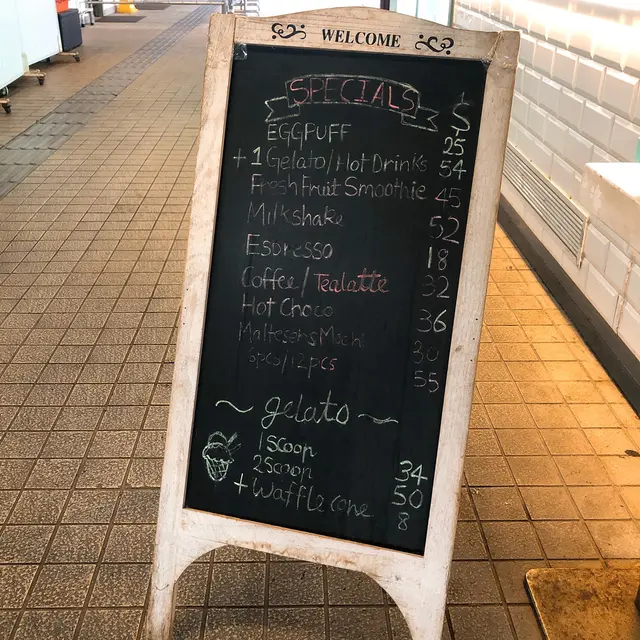 WELCOME
SPECIALS $
EGGPUFF 25
+1 Gelato/Hot Drinks 54
Fresh Fruit Smoothie 45
Milkshake 52
Espresso 18
Coffee/Tealatte 32
Hot Choco 36
Maltesers Mochi 30
6pcs/12pcs 55
~ gelato ~
1 Scoop 34
2 Scoop 50
+ Waffle cone 8